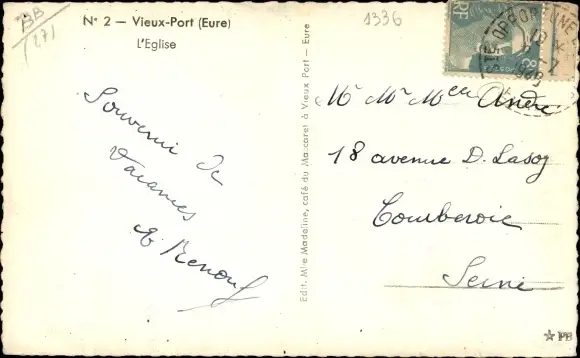 BB
(27)
N° 2 — Vieux-Port (Eure)
L'Eglise
1336
RF
POSTES
Souvenir de
Vacances
Renouf
Edit. Mlle Madeline, café du Mascaret à Vieux Port - Eure
Mr Mme Melle André
18 avenue D. Lasoz
Courbevoie
Seine
☆ PB